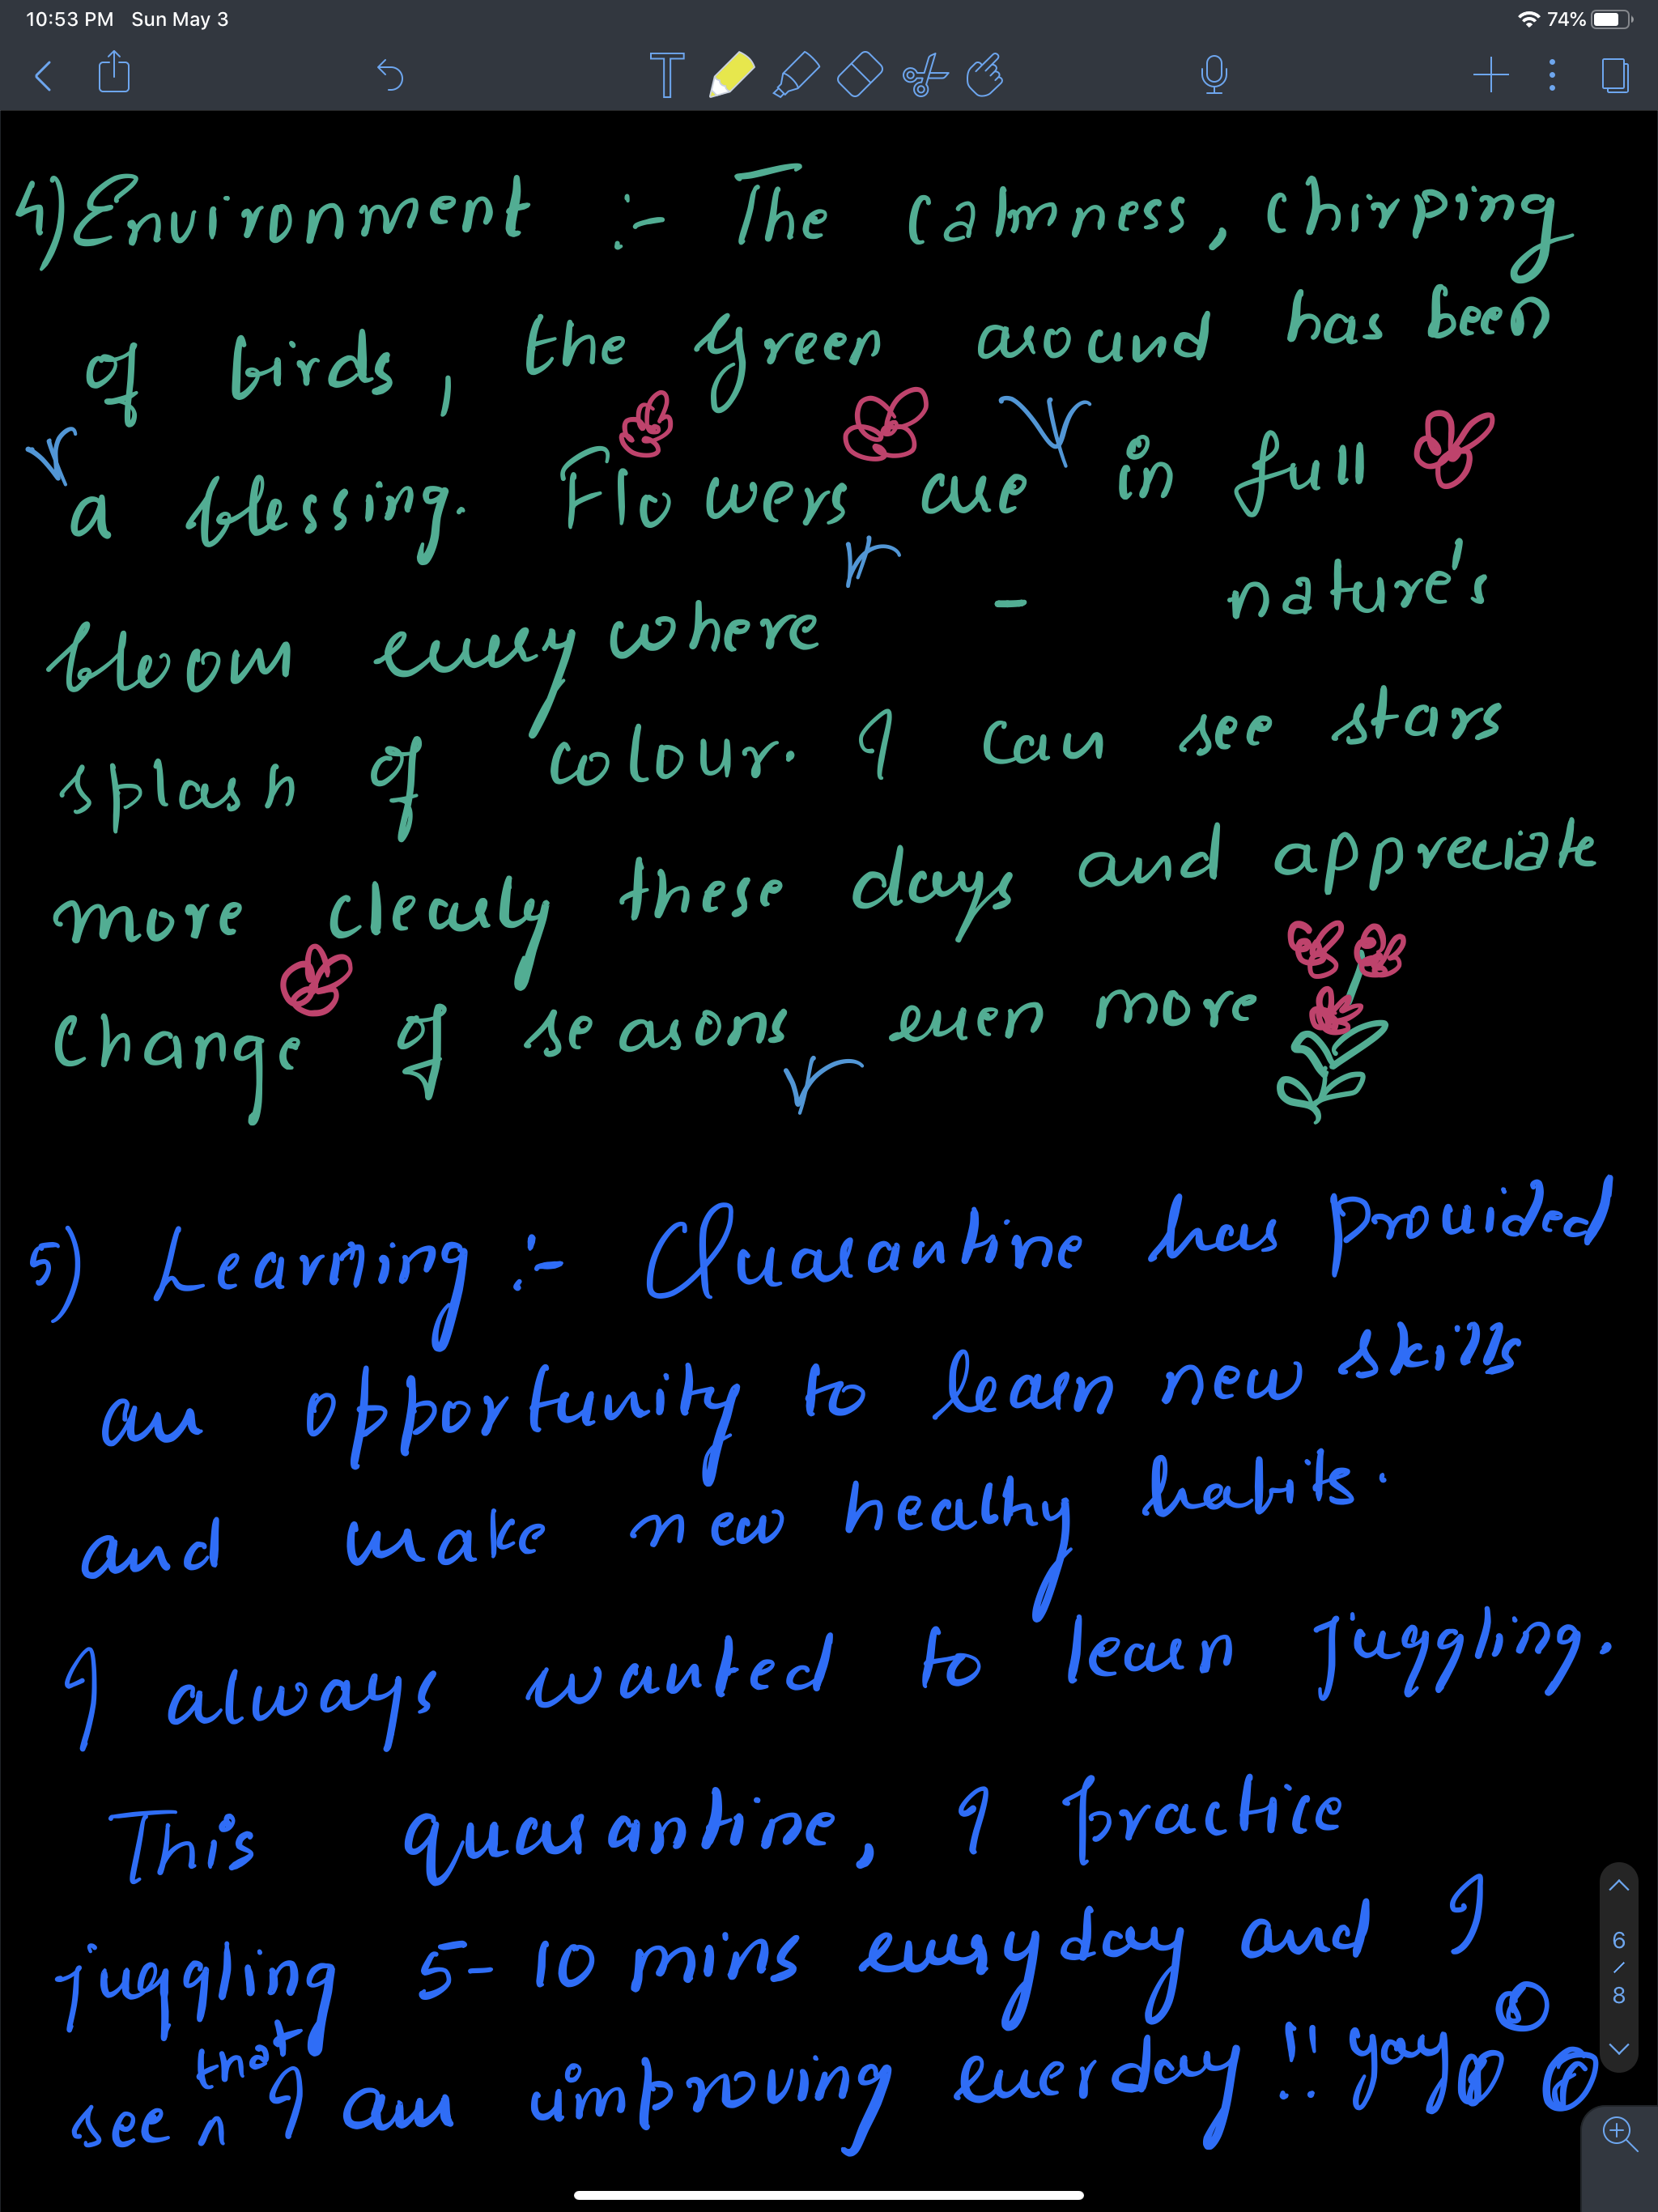 10:53 PM Sun May 3 74%
4) Environment :- The calmness, chirping
of birds, the green around has been
a blessing. Flowers are in full
bloom everywhere - nature's
splash of colour. I can see stars
more clearly these days and appreciate
change of seasons even more
5) Learning :- Quarantine has provided
an opportunity to learn new skills
and make new healhy habits.
I always wanted to learn juggling.
This quarantine, I practice
juggling 5-10 mins everyday and I
see that I am improving everday!! yay
6/8